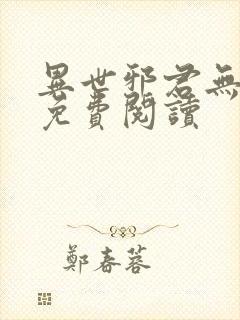 異世邪君無
免費閱讀
鄭春蓉